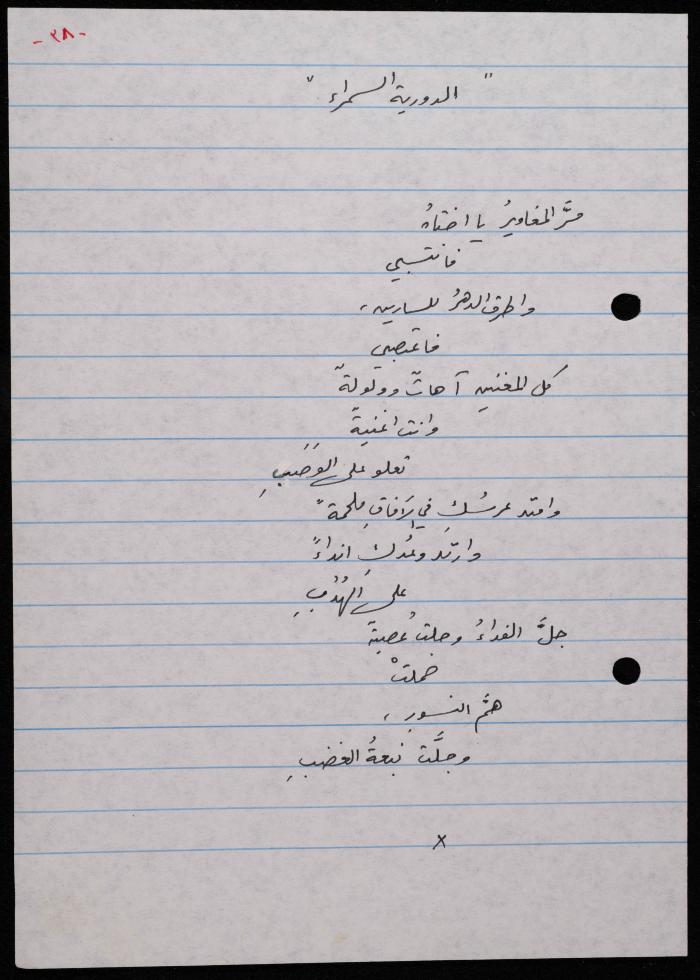 -٣٨-
" الدورية السمراء "
مرَّ المغاويرُ يا اختاهُ
فانتسبي
واطرق الدهرُ للسارين،
فاعتصبي
كل المغنين آهاتٌ وولولةٌ
وانت اغنيةٌ
تعلو على الوَصَبِ
وامتد عرسُكِ في الآفاقِ ملحمةً
وارتد وعْدُكِ انداءً
على الهُدُبِ
جلَّ الفداءُ وجلت عُصبةٌ
حملتْ
همَّ النسورِ،
وجلَّت نبعةُ الغضبِ
x